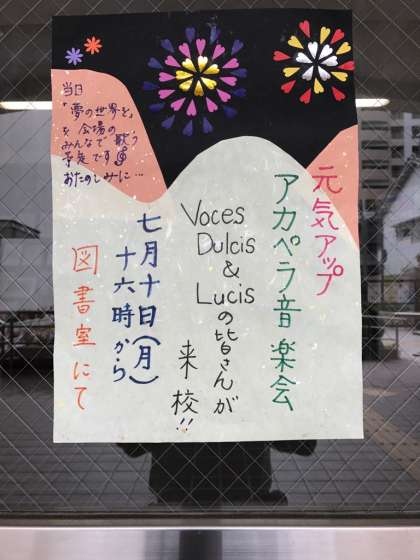 元気アップ
アカペラ音楽会
Voces
Dulcis
&
Lucis
の皆さんが
来校!!
七月十日(月)
十六時から
図書室にて
当日
「夢の世界を」
を会場の
みんなで歌う
予定です
おたのしみに…